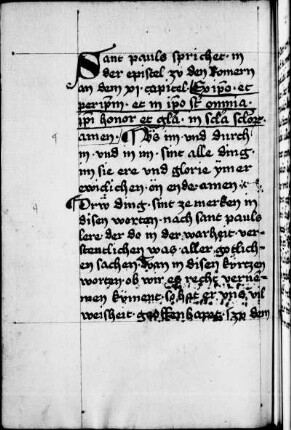 Sant pauls sprichet in
der epistel zv den Romern
an dem xi capitel Ex ipo et
per ipm et in ipo st omnia
ipi honor et gla in scla sclor
amen Vs im vnd durch
in vnd in im sint alle ding
im sie ere vnd glorie ymer
ewiclichen on ende amen
Drw ding sint ze merken in
disen worten nach sant pauls
lere der do in der warheit ver
stentlichen was aller gotlich
en sachen Wan in disen kvrtzen
worten ob wir es recht verne
men kvnnent so hat er vns vil
weisheit geoffenbaret zv dem